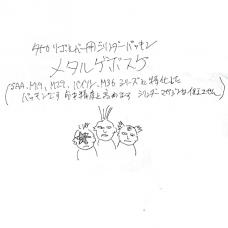 タナカリボルバー用シリンダーパッキン
メタルゲボスケ
(SAA、M19、M29、パイソン、M36 シリーズに特化した
パッキンです 命中精度を高めます シリンダー マガジンは付きません)